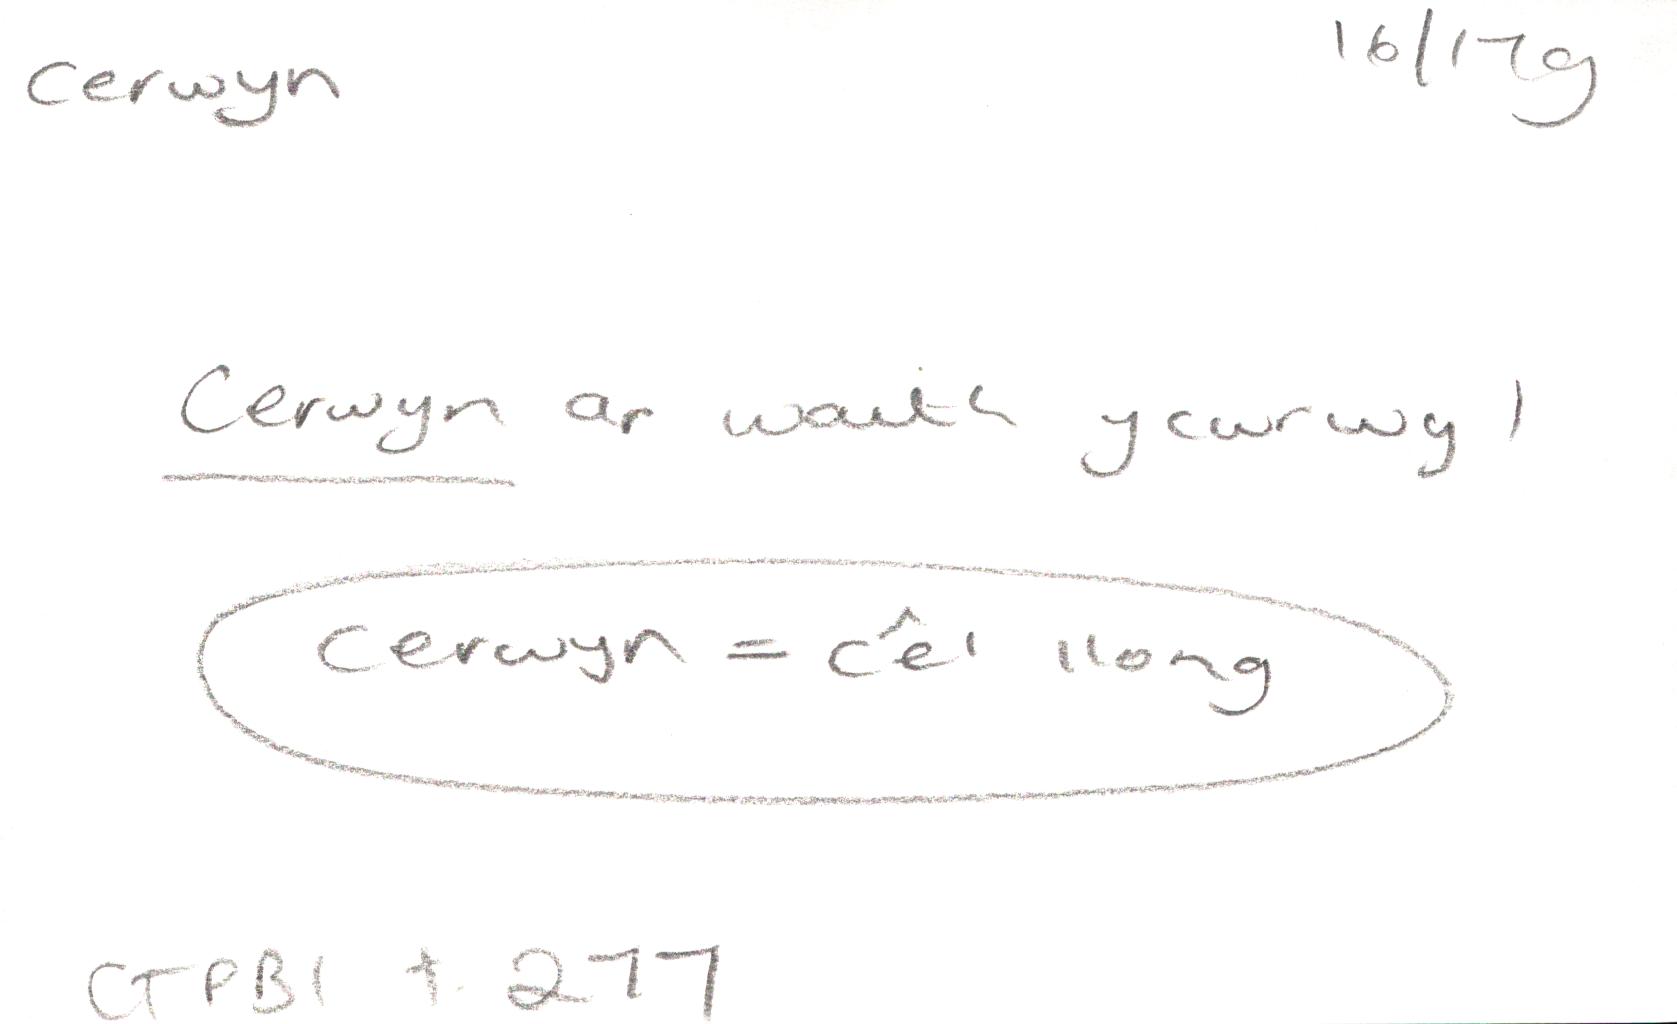 Cerwyn 16/17g
Cerwyn ar waith y cwrwgl
cerwyn = cêl llong
CTPB1 t. 277